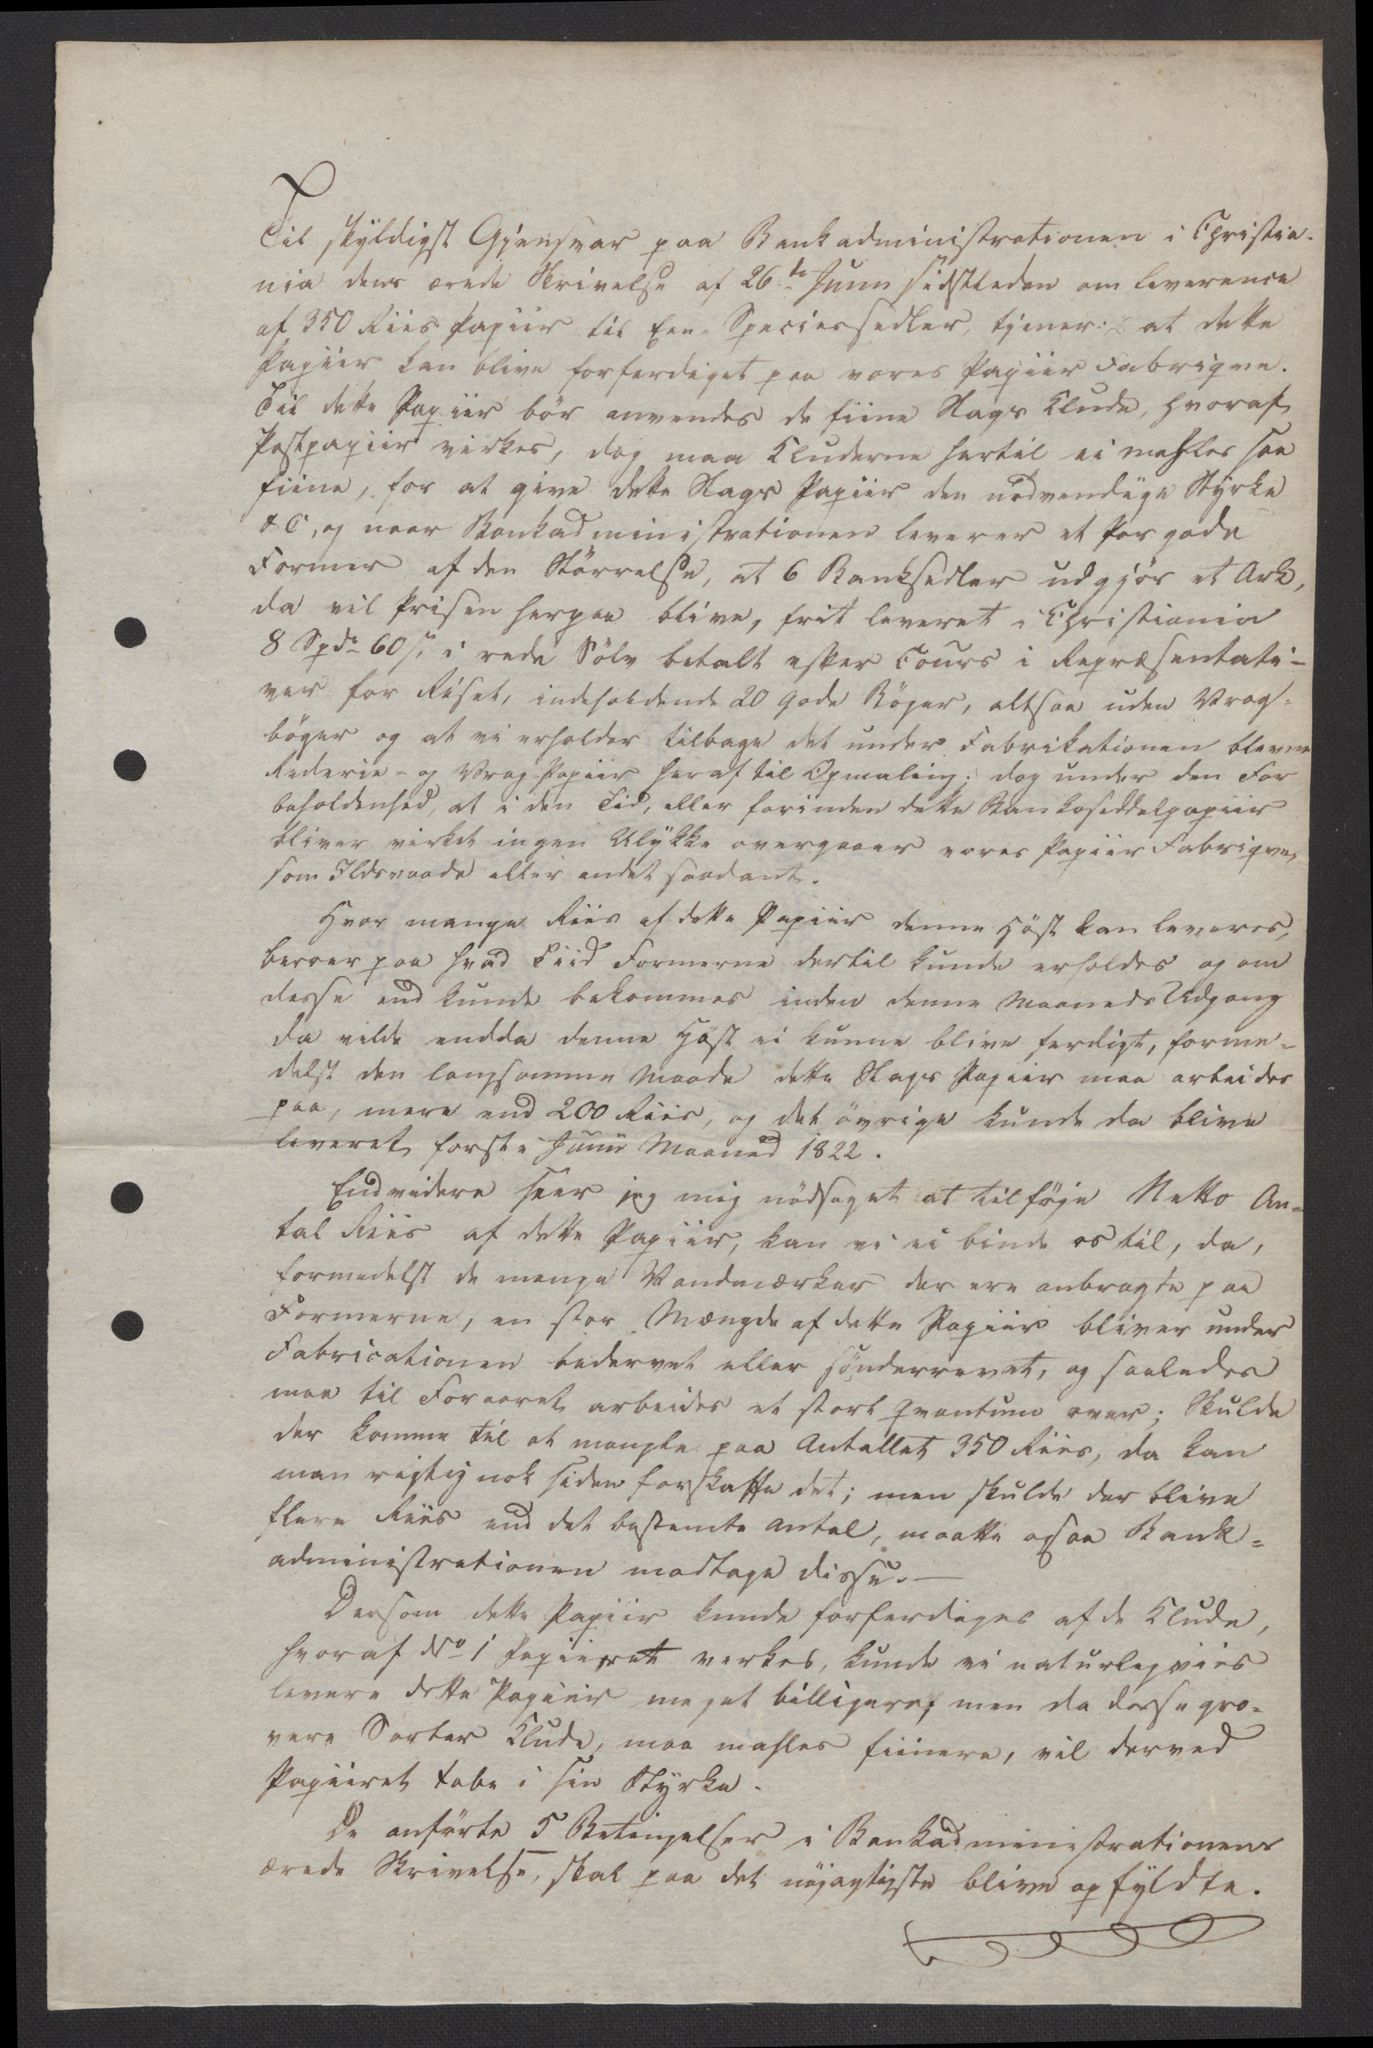 Til skyldigst Gjensvar paa Bankadministrationen i Christia-
nia dens ærede Skrivelse af 26de Junii sidstleden om leverence
af 350 Riis Papiir til Een-Speciessedler, tjener: at dette
Papiir kan blive forferdiget paa vores Papiir Fabriqve.
Til dette Papiir bör anvendes de fiine Slags Klude, hvoraf
Postpapiir virkes, dog maa Kluderne hertil ei mahles saa
fiine, for at give dette Slags Papiir den nödvendige Styrke
&c, og naar Bankadministrationen leverer et par gode
Former af den Störrelse, at 6 Banksedler udgjör et Ark,
da vil Prisen herpaa blive, frit leveret i Christiania
8 Spd 60 s, i rede Sölv betalt efter Cours i Repræsentati-
ver for Riset, indeholdende 20 gode Böger, altsaa uden Vrag-
böger og at vi erholder tilbage det under Fabrikationen blevne
Rederie- og Vrag-Papiir heraf til Opmaling; dog under den For
beholdenhed, at i den Tid, eller forinden dette Bankoseddelpapiir
bliver virket ingen Ulykke overgaaer vores Papiir Fabriqve,
som Ildsvaade eller andet saadant.
Hvor mange Riis af dette Papiir denne Höst kan leveres,
beroer paa hvad Tiid Formerne dertil kunde erholdes og om
desse end kunde bekommes inden denne Maaneds Udgang
da vilde endda denne Höst ei kunne blive ferdigt, forme-
delst den langsomme Maade dette Slags Papiir maa arbeides
paa, mere end 200 Riis, og det övrige kunde da blive
leveret förste Junii Maaned 1822.
Endvidere seer jeg mig nödsaget at tilföje Netto An-
tal Riis af dette Papiir, kan vi ei binde os til, da,
formedelst de mange Vandmærker der ere anbragte paa
Formerne, en stor Mængde af dette Papiir bliver under
Fabricationen bedervet eller sönderrevet, og saaledes
maa til Foraaret arbeides et stort Qvantum over; Skulde
der komme til at mangle paa Antallet 350 Riis, da kan
man rigtig nok siden forskaffe det; men skulde der blive
flere Riis end det bestemte Antal, maatte ogsaa Bank-
administrationen modtage disse.—
Dersom dette Papiir kunde forferdiges af de Klude,
hvoraf No 1 Papiiret verkes, kunde vi naturligviis
levere dette Papiir meget billigere; men da desse gro-
vere Sorter Klude, maa mahles fiinere, vil derved
Papiiret tabe i sin Styrke.
De anförte 5 Betingelser i Bankadministrationens
ærede Skrivelse, skal paa det nöjagtigste blive opfyldte.